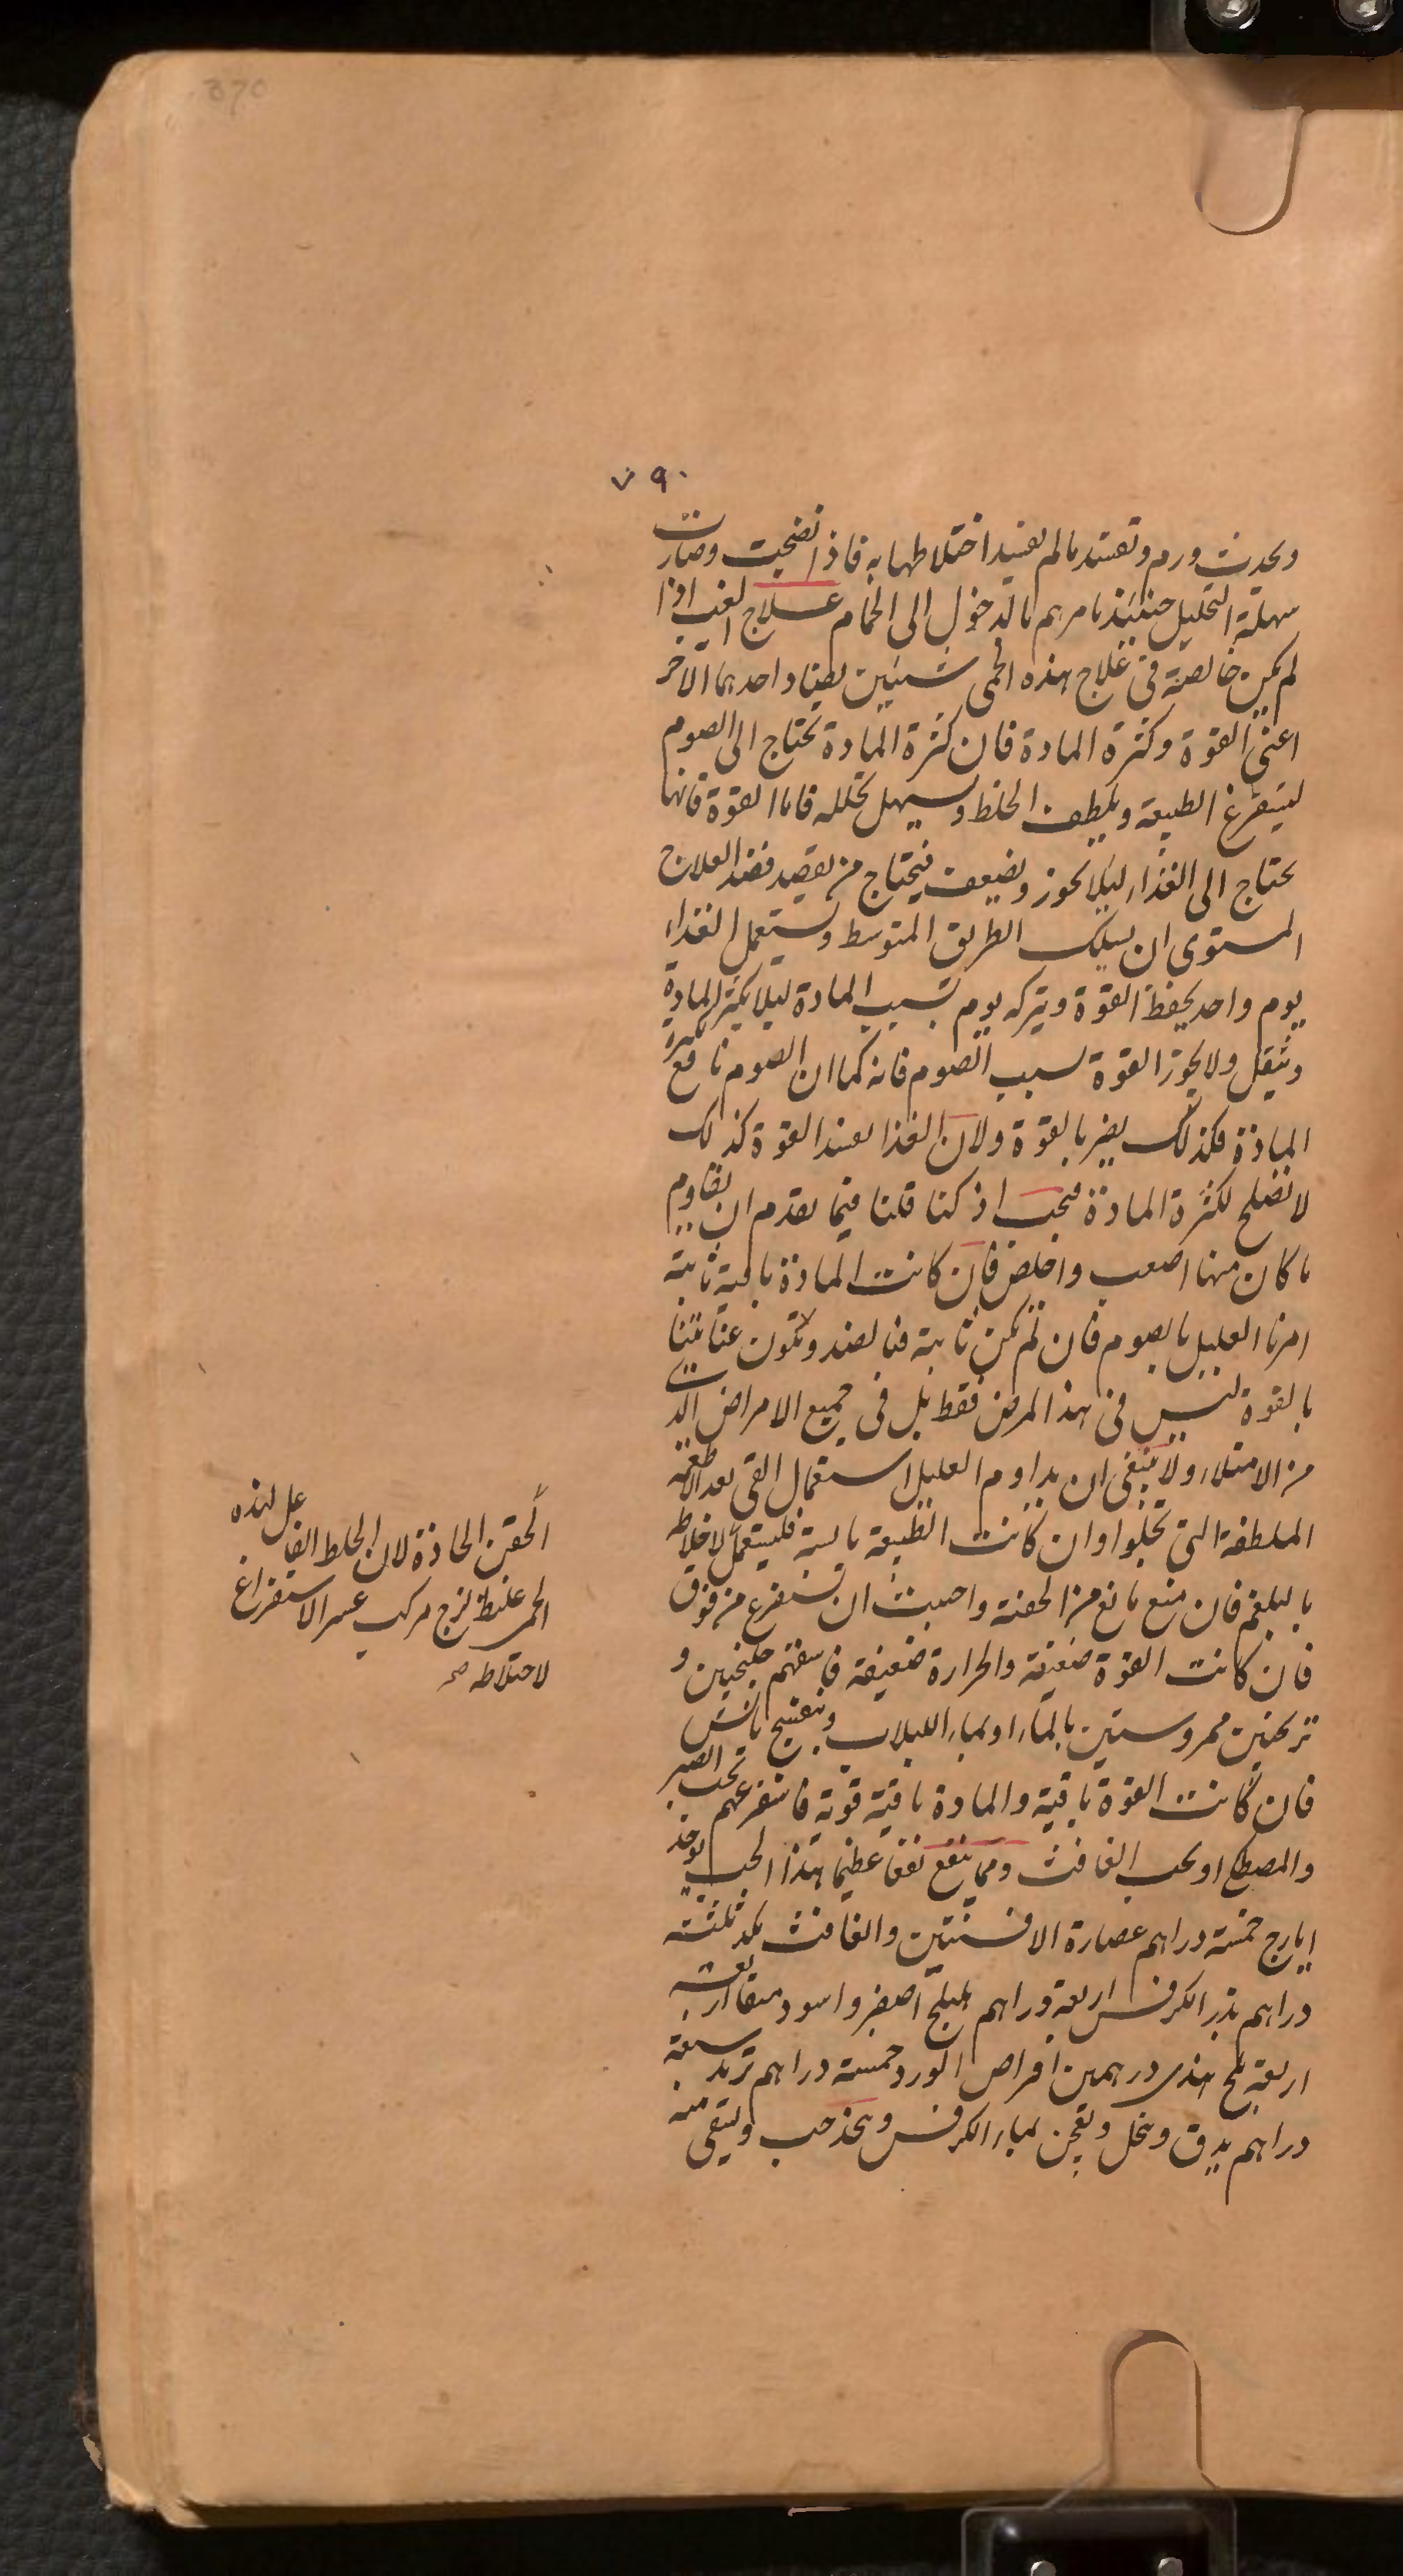 370
٧٩٠
ويحدث ورم وتفسد ما لم يفسد اختلاطها به فاذا نضجت وصارت
سهلة التحليل حينئذ نامرهم بالدخول الى الحمام علاج الغب اذا
لم يكن خالصة في علاج هذه الحمى شيئين يضاد احدهما الآخر
اعنى القوة وكثرة المادة فان كثرة المادة تحتاج الى الصوم
ليتفرغ الطبيعة ويلطف الخلط ويسهل تحلله فاما القوة فانها
تحتاج الى الغذاء ليلا تخور ويضعف فيحتاج من يقصد قصد العلاج
المستوى ان يسلك الطريق المتوسط ويستعمل الغذاء
يوم واحد يحفظ القوة ويتركه يوم بسبب المادة ليلا يكثر المادة
وتثقل ولا يخور القوة بسبب الصوم فانه كما ان الصوم نافع لكثرة
المادة فكذلك يضر بالقوة ولان الغذا يفسد القوة كذلك
لا تصلح لكثرة المادة فيجب اذ كنا قلنا فيما يقدم ان يقاوم
ما كان منها اصعب واخلص فان كانت المادة باقية ثابتة
امرنا العليل بالصوم فان لم تكن ثابتة فبالضد ولا تكون عنايتنا
بالقوة ليس في هذا المرض فقط بل في جميع الامراض التي
من الامتلاء ولا ينبغى ان يداوم العليل استعمال القي بعد الاطعمة
الملطفة التي تجلوا وان كانت الطبيعة يابسة فليستعمل لاخلاطه
بالبلغم فان منع مانع من الحقنة واحببت ان تستفرغ من فوق
فان كانت القوة ضعيفة والحرارة ضعيفة فاسقهم جلنجبين و
ترنجبين ممروستين بالماء او بماء اللبلاب وبنفسج يابس
فان كانت القوة باقية والمادة باقية قوية فاستفرغهم بحب الصبر
والمصطكى او بحب الغافت ومما ينفع نفعا عظيما هذا الحب يوخذ
ايارج خمسة دراهم عصارة الافسنتين والغافت بكد ثلثة
دراهم بذر الكرفس اربعة دراهم هليلج اصفر واسود من كل اربعة
اربعة ملح هندى درهمين اقراص الورد خمسة دراهم تربد سبعة
دراهم يدق وينخل ويعجن بماء الكرفس ويتخذ حب ويسقى منه
الحقن الحادة لان الخلط الفاعل لهذه
الحمى غليظ لزج مركب عسر الاستفراغ
لاختلاطه صح